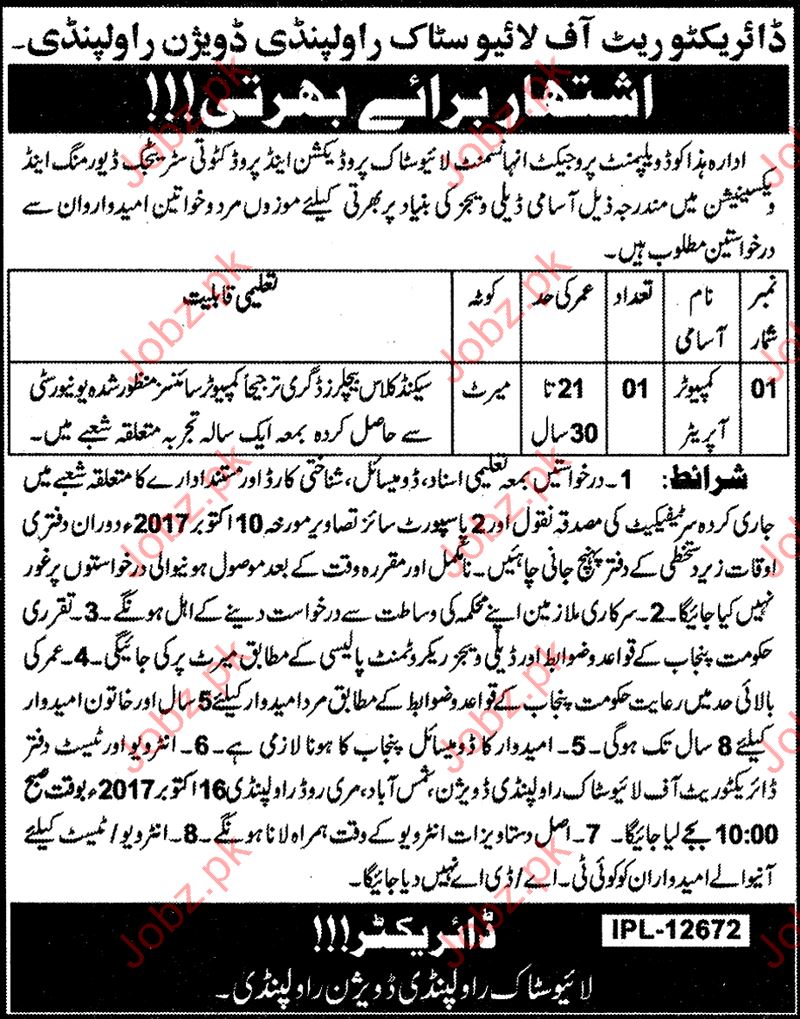 ڈائریکٹوریٹ آف لائیو سٹاک راولپنڈی ڈویژن راولپنڈی۔
اشتھار برائے بھرتی!!!
ادارہ ہذا کو ڈویلپمنٹ پروجیکٹ انہانسمنٹ لائیوسٹاک پروڈیکشن اینڈ پروڈکٹوٹی سٹریٹجک ڈیورمنگ اینڈ
ویکسینیشن میں مندرجہ ذیل آسامی ڈیلی ویجز کی بنیاد پر بھرتی کیلئے موزوں مرد و خواتین امیدواروان سے
درخواستین مطلوب ہیں۔
نمبر شمار | نام آسامی | تعداد | عمر کی حد | کوٹہ | تعلیمی قابلیت
01 | کمپیوٹر آپریٹر | 01 | 21 تا 30 سال | میرٹ | سیکنڈ کلاس بیچلرز ڈگری ترجیحاً کمپیوٹر سائنسز منظور شدہ یونیورسٹی
سے حاصل کردہ بمعہ ایک سالہ تجربہ متعلقہ شعبے میں۔
شرائط: 1۔ درخواستیں بمعہ تعلیمی اسناد، ڈومیسائل، شناختی کارڈ اور مستند ادارے کا متعلقہ شعبے میں
جاری کردہ سرٹیفیکیٹ کی مصدقہ نقول اور 2 پاسپورٹ سائز تصاویر مورخہ 10 اکتوبر 2017ء دوران دفتری
اوقات زیر دستخطی کے دفتر پہنچ جانی چاہئیں۔ نامکمل اور مقررہ وقت کے بعد موصول ہونیوالی درخواستوں پر غور
نہیں کیا جائیگا۔ 2۔ سرکاری ملازمین اپنے محکمہ کی وساطت سے درخواست دینے کے اہل ہونگے۔ 3۔ تقرری
حکومت پنجاب کے قواعد و ضوابط اور ڈیلی ویجز ریکروٹمنٹ پالیسی کے مطابق میرٹ پر کی جائیگی۔ 4۔ عمر کی
بالائی حد میں رعایت حکومت پنجاب کے قواعد و ضوابط کے مطابق مرد امیدوار کیلئے 5 سال اور خاتون امیدوار
کیلئے 8 سال تک ہوگی۔ 5۔ امیدوار کا ڈومیسائل پنجاب کا ہونا لازمی ہے۔ 6۔ انٹرویو اور ٹیسٹ دفتر
ڈائریکٹوریٹ آف لائیوسٹاک راولپنڈی ڈویژن، شمس آباد، مری روڈ راولپنڈی 16 اکتوبر 2017ء بوقت صبح
10:00 بجے لیا جائیگا۔ 7۔ اصل دستاویزات انٹرویو کے وقت ہمراہ لانا ہونگے۔ 8۔ انٹرویو/ ٹیسٹ کیلئے
آنیوالے امیدواران کو کوئی ٹی۔ اے/ ڈی اے نہیں دیا جائیگا۔
IPL-12672
ڈائریکٹر!!!
لائیوسٹاک راولپنڈی ڈویژن راولپنڈی۔
Jobz.pk